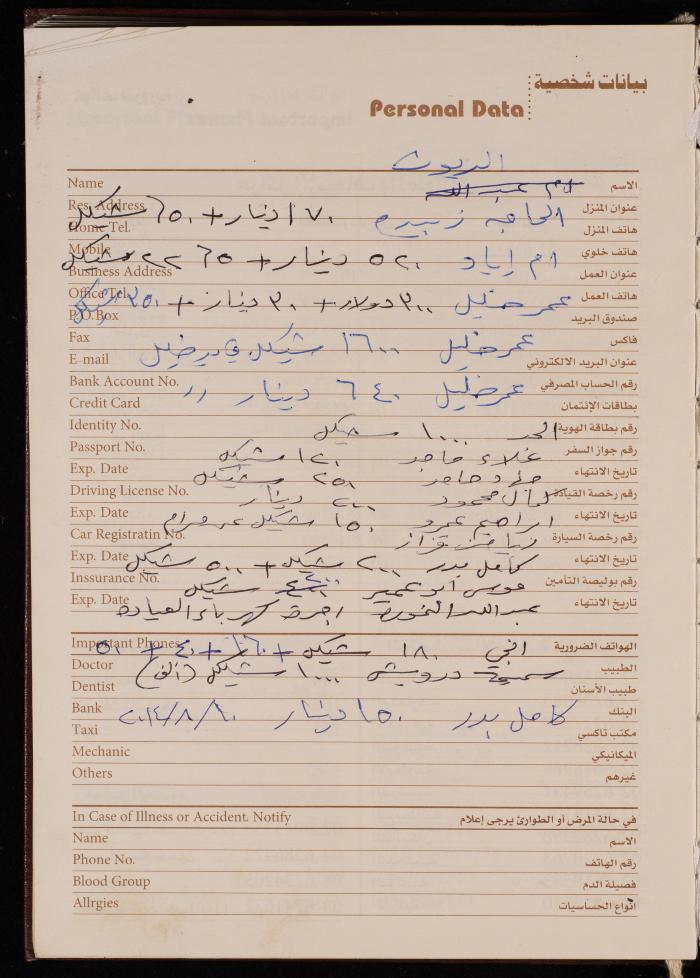 بيانات شخصية
Personal Data
الديون
Name ام عبد الله الاسم
Res. Address عنوان المنزل
الحاجة زبيدة ١٧٠ دينار + ٦٥٠ شيكل
Home Tel. هاتف المنزل
Mobile هاتف خلوي
ام اياد ٥٢٠ دينار +
Business Address عنوان العمل
Office Tel. هاتف العمل
عمر خليل ٣٠٠ دولار + ٣٠ دينار + ٣٥٠ شيكل
P.O.Box صندوق البريد
Fax فاكس
عمر خليل ١٦٠٠ شيكل
E-mail عنوان البريد الالكتروني
Bank Account No. رقم الحساب المصرفي
عمر خليل ٦٤٠ دينار //
Credit Card بطاقات الإئتمان
Identity No. رقم بطاقة الهوية
١٠٠٠ شيكل
Passport No. رقم جواز السفر
١٢٠ شيكل
Exp. Date تاريخ الانتهاء
٢٥٠ شيكل
Driving License No. رقم رخصة القيادة
محمود ٢٠٠ دينار
Exp. Date تاريخ الانتهاء
ابراهيم عمرو ١٥٠ شيكل
Car Registratin No. رقم رخصة السيارة
Exp. Date تاريخ الانتهاء
كامل بدر ٢٠٠٠ شيكل + ٥٠٠ شيكل
Inssurance No. رقم بوليصة التأمين
موسى ابو عمير ٢٠٠ شيكل
Exp. Date تاريخ الانتهاء
عبد الله اجرة كهرباء العيادة
Important Phones الهواتف الضرورية
اخي ١٨٠ شيكل + + ٤٠ + ٥٠
Doctor الطبيب
درويش ١٠٠٠ شيكل (الف)
Dentist طبيب الأسنان
Bank البنك
كامل بدر ١٥٠ دينار ٢٠١٤/٨/١٠
Taxi مكتب تاكسي
Mechanic الميكانيكي
Others غيرهم
In Case of Illness or Accident. Notify في حالة المرض أو الطوارئ يرجى إعلام
Name الاسم
Phone No. رقم الهاتف
Blood Group فصيلة الدم
Allrgies أنواع الحساسيات